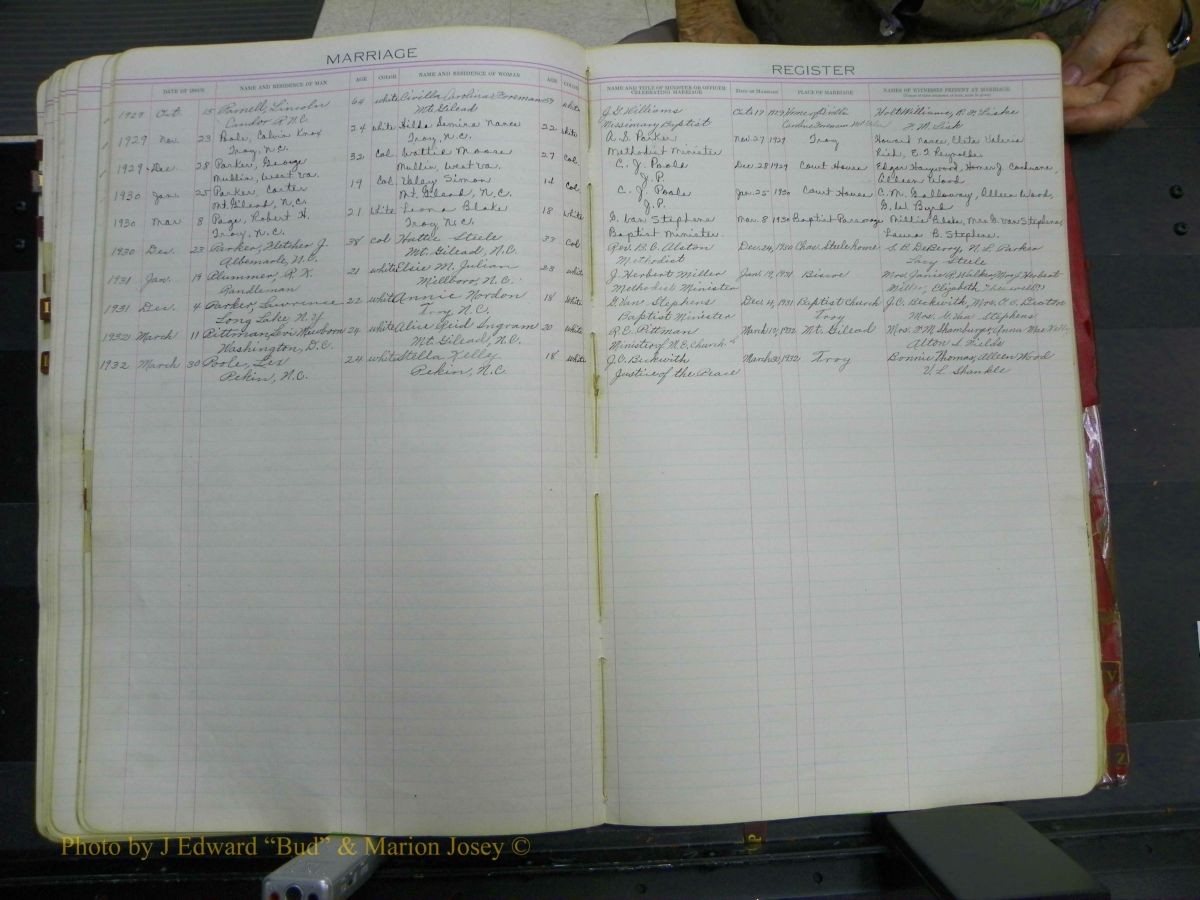 MARRIAGE
DATE OF ISSUE NAME AND RESIDENCE OF MAN AGE COLOR NAME AND RESIDENCE OF WOMAN AGE COLOR
1929 Oct. 15 Parnell, Lincoln 64 white Civilla Carolina Foreman 59 white
Candor R N.C. Mt. Gilead
1929 Nov. 23 Poole, Calvin Knox 24 white Hilda Semira Nance 22 white
Troy, N.C. Troy, N.C.
1929 Dec. 28 Parker, George 32 Col. Wattie Moore 27 Col.
Mullin, West Va. Mullin, West Va.
1930 Jan. 25 Parker, Carter 19 Col. Valey Simon 14 Col.
Mt. Gilead, N.C. Mt. Gilead, N.C.
1930 Mar 8 Page, Robert H. 21 White Leona Blake 18 White
Troy, N.C. Troy, N.C.
1930 Dec. 23 Parker, Fletcher J. 38 Col Hattie Steele 37 Col
Albemarle, N.C. Mt. Gilead, N.C.
1931 Jan. 19 Plummer, R. K. 21 white Elsie M. Julian 23 white
Randleman Millboro, N.C.
1931 Dec. 4 Parker, Lawrence 22 white Annie Nordon 18 White
Long Lake, N.Y. Troy N.C.
1932 March 11 Pittman, Levi Mewborn 24 white Alice Reid Ingram 20 White
Washington, D.C. Mt. Gilead, N.C.
1932 March 30 Poole, Lex 24 white Stella Kelly 18 white
Pekin, N.C. Pekin, N.C.
REGISTER
NAME AND TITLE OF MINISTER OR OFFICER CELEBRATING MARRIAGE DATE OF MARRIAGE PLACE OF MARRIAGE NAMES OF WITNESSES PRESENT AT MARRIAGE
J. G. Williams Oct. 17 1929 Home of Civilla Holt Williams,
Missionary Baptist Caroline Foreman Mt. Gilead
A. S. Parker Nov 27 1929 Troy Howard Nance, Cleta Valeria
Methodist Minister Rich, E. T. Reynolds
C. J. Poole Dec. 28 1929 Court House Edgar Haywood, Homer J. Cochrane,
J.P. Alleen Wood
C. J. Poole Jan. 25 1930 Court House C. M. Galloway, Alleen Wood,
J.P. G. W. Byrd
G. Van Stephens Mar. 8 1930 Baptist Parsonage Millie Blake, Mrs. G. Van Stephens,
Baptist Minister Laura B. Stephens
Rev. B. C. Alston Dec. 24, 1930 Chas. Steele home S. B. DeBerry, N. L. Parker
Methodist Lacy Steele
J. Herbert Miller Jan. 19, 1931 Biscoe Mrs. Janie R. Walker, Mrs. J. Herbert
Methodist Minister Miller, Elizabeth
G. Van Stephens Dec. 4, 1931 Baptist Church J. O. Beckwith, Mrs. A. C. Deaton
Baptist Minister Troy Mrs. G. Van Stephens
R. C. Pittman March 12, 1932 Mt. Gilead Mrs. D. M. Shamburger, Anna Mae Kelly
Minister of M.E. Church Alton S. Fields
J. O. Beckwith March 30, 1932 Troy Bonnie Thomas, Alleen Wood
Justice of the Peace V. L. Shankle
V
Z
Photo by J Edward “Bud” & Marion Josey ©